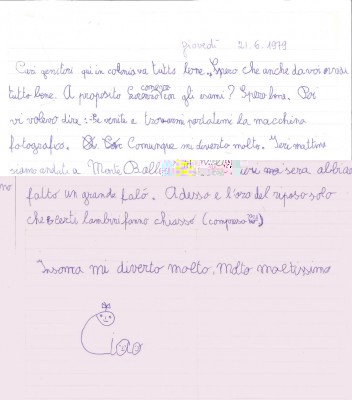 giovedì 21.6.1979
Cari genitori qui in colonia va tutto bene. Spero che anche da voi vada
tutto bene. A proposito comme con gli esami? Spero bene. Poi
vi volevo dire: Se venite a trovarmi portatemi la macchina
fotografica. Comunque mi diverto molto. Ieri mattina
siamo andati a Monte Ball ieri sera abbia
mo fatto un grande falò. Adesso è l'ora del riposo solo
che certi fanno chiasso (compreso io)
Insoma mi diverto molto. Molto moltissimo
Ciao